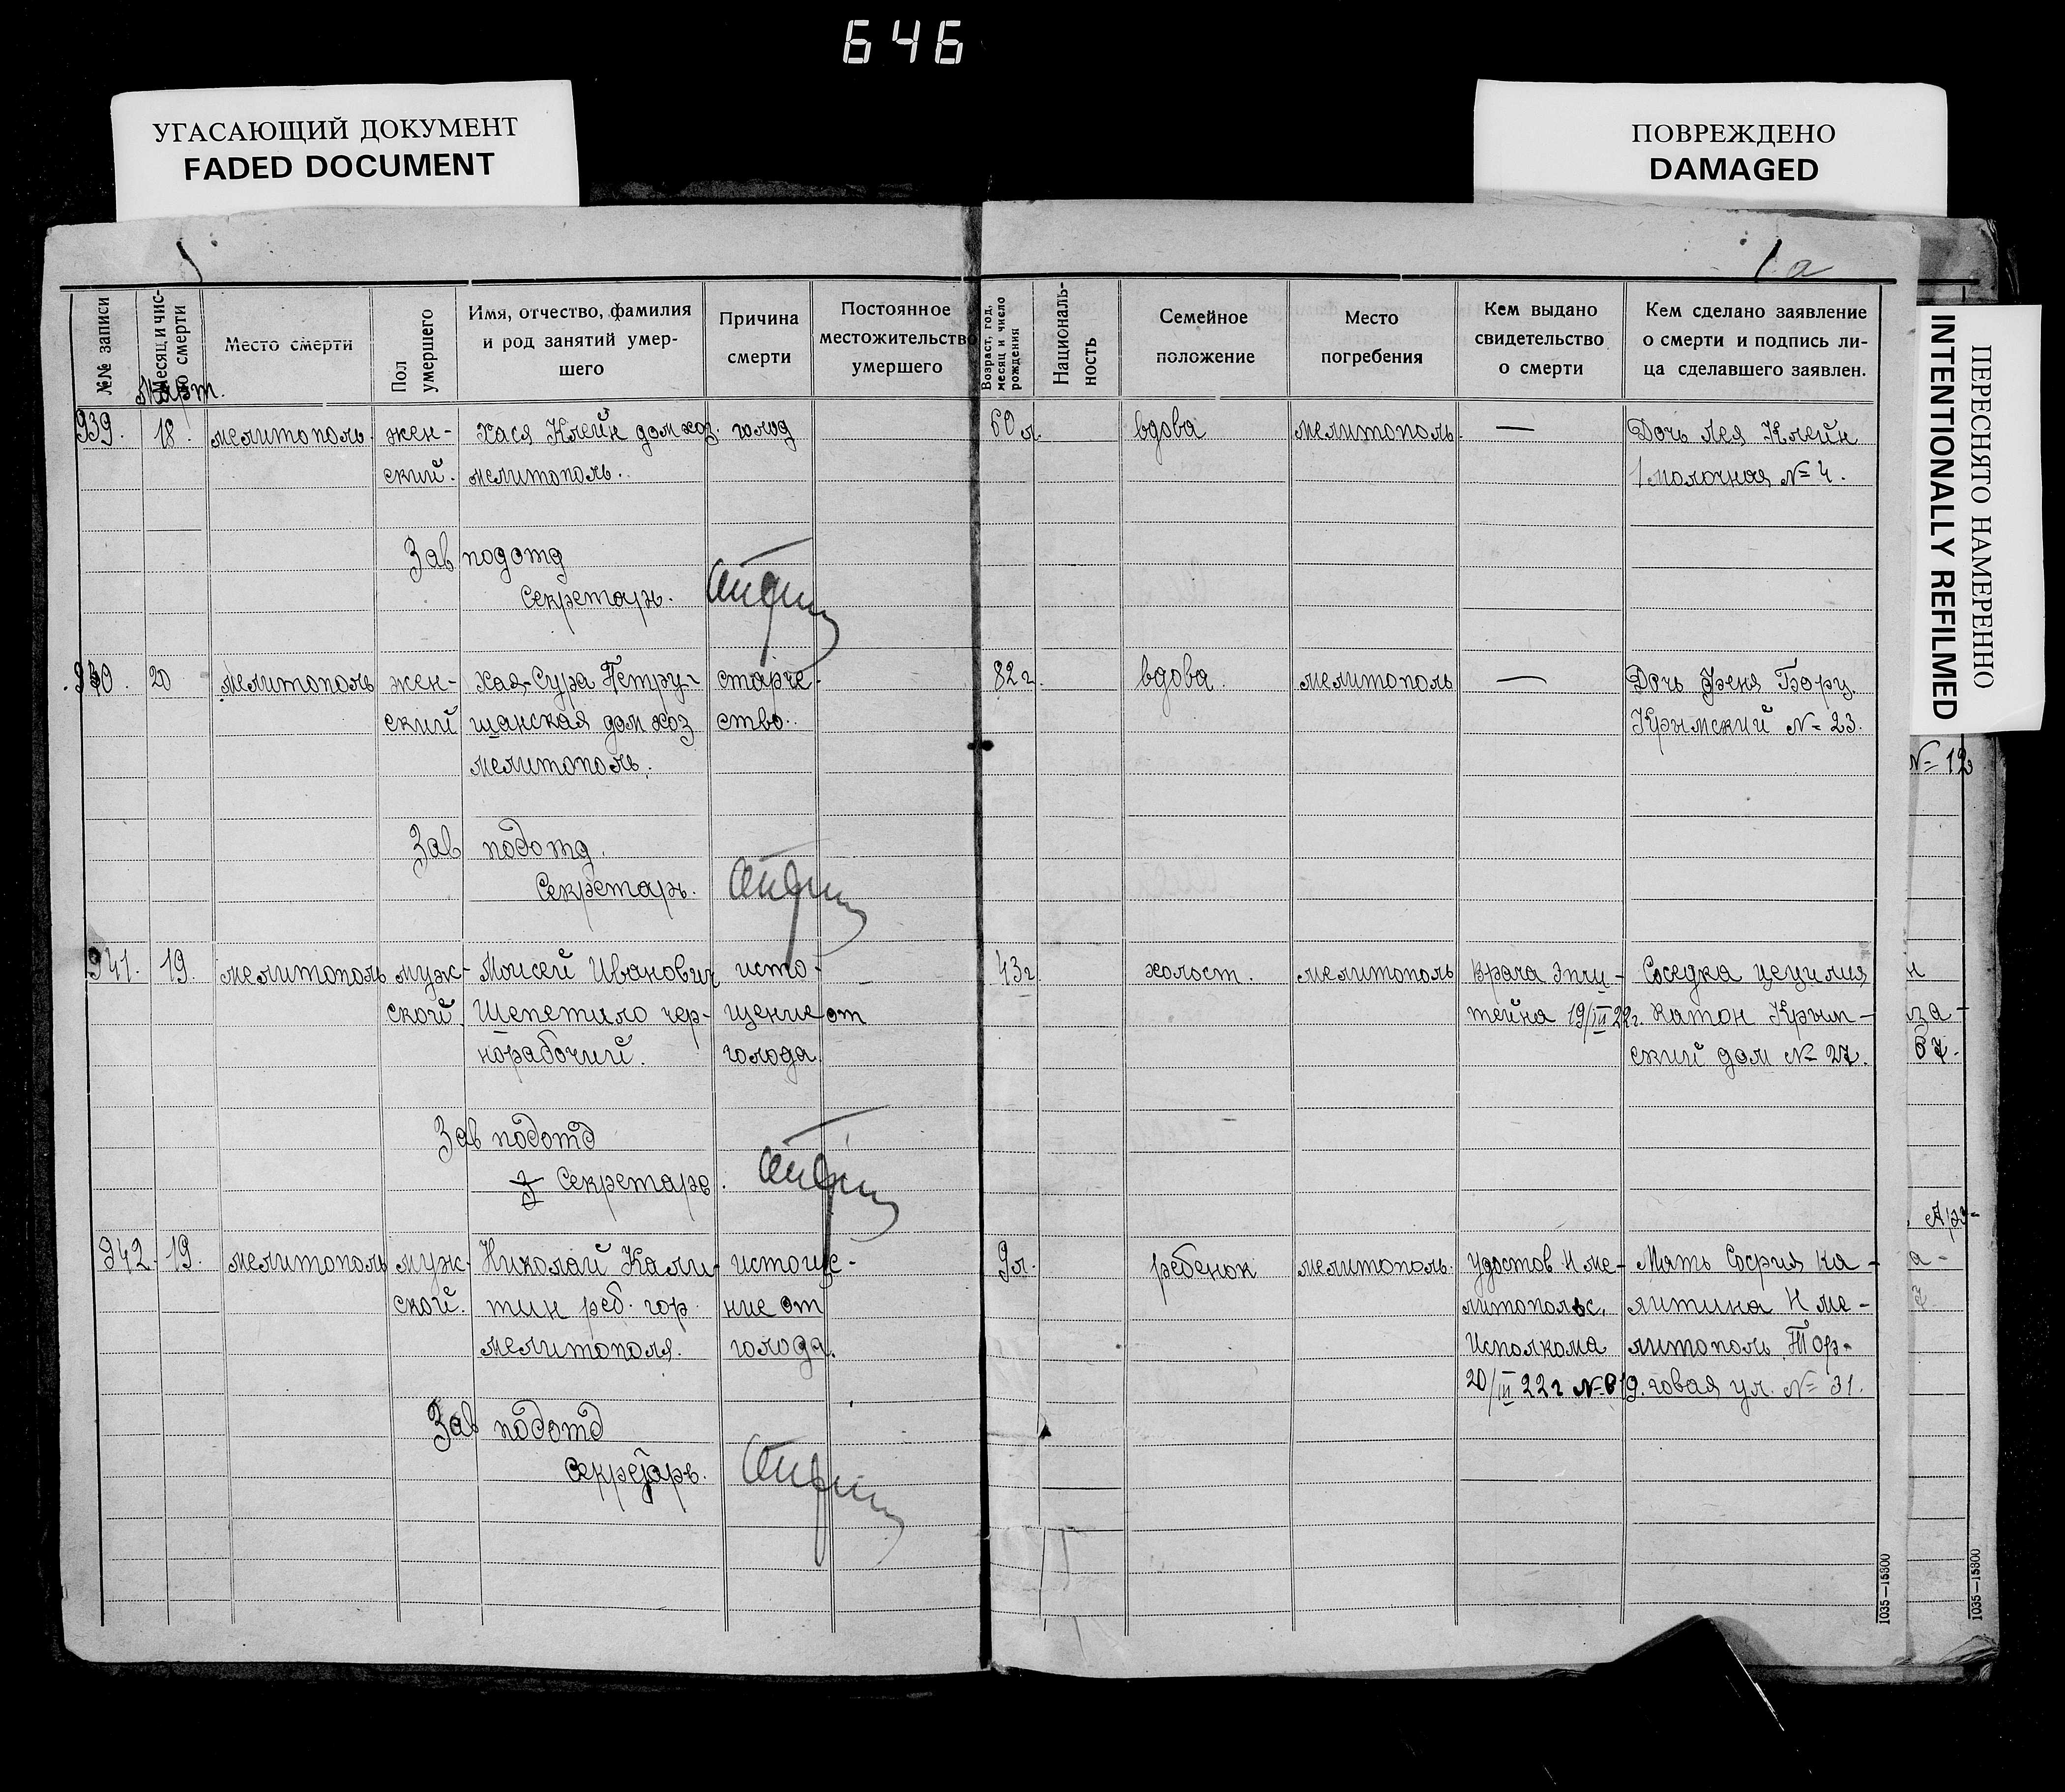 646
УГАСАЮЩИЙ ДОКУМЕНТ
FADED DOCUMENT
ПОВРЕЖДЕНО
DAMAGED
ПЕРЕСНЯТО НАМЕРЕННО
INTENTIONALLY REFILMED
1
1а
№№ записи
Месяц и чис-
ло смерти
Место смерти
Пол
умершего
Имя, отчество, фамилия
и род занятий умер-
шего
Причина
смерти
Постоянное
местожительство
умершего
Возраст, год,
месяц и число
рождения
Националь-
ность
Семейное
положение
Место
погребения
Кем выдано
свидетельство
о смерти
Кем сделано заявление
о смерти и подпись ли-
ца сделавшего заявлен.
Март.
939. 18. мелитополь. жен- Хася Клейн дом хоз. голод 60 л. вдова мелитополь. — Дочь Лея Клейн
ский. мелитополь. 1 Молочная № 4.
Зав подотд
Секретарь.
940. 20 мелитополь жен- Хая-Сура Петру- старче- 82 г. вдова. мелитополь — Дочь Феня Борц.
ский шанская дом хоз ство. Крымский № 23.
мелитополь.
Зав подотд.
Секретарь.
941. 19. мелитополь муж- Моисей Иванович исто- 43 г. холост. мелитополь врача Эпш- Соседка Цецилия
ской. Шепетило чер- щение от тейна 19/III 22г. Катон Крым-
норабочий. голода. ский дом № 27.
Зав подотд
Секретарь.
942. 19. мелитополь муж- Николай Кали- истоще- 9 л. ребенок мелитополь. Удостов. Н ме- Мать София Ка-
ской. тин реб. гор. ние от литопольс. литина Н ме-
мелитополя. голода. Исполкома литополь. Тор-
20/III 22 г № 819. говая ул. № 31.
Зав подотд
Секретарь.
№ 19
н
за-
67.
Ар-
а-
7.
1035—15800
1035—15800